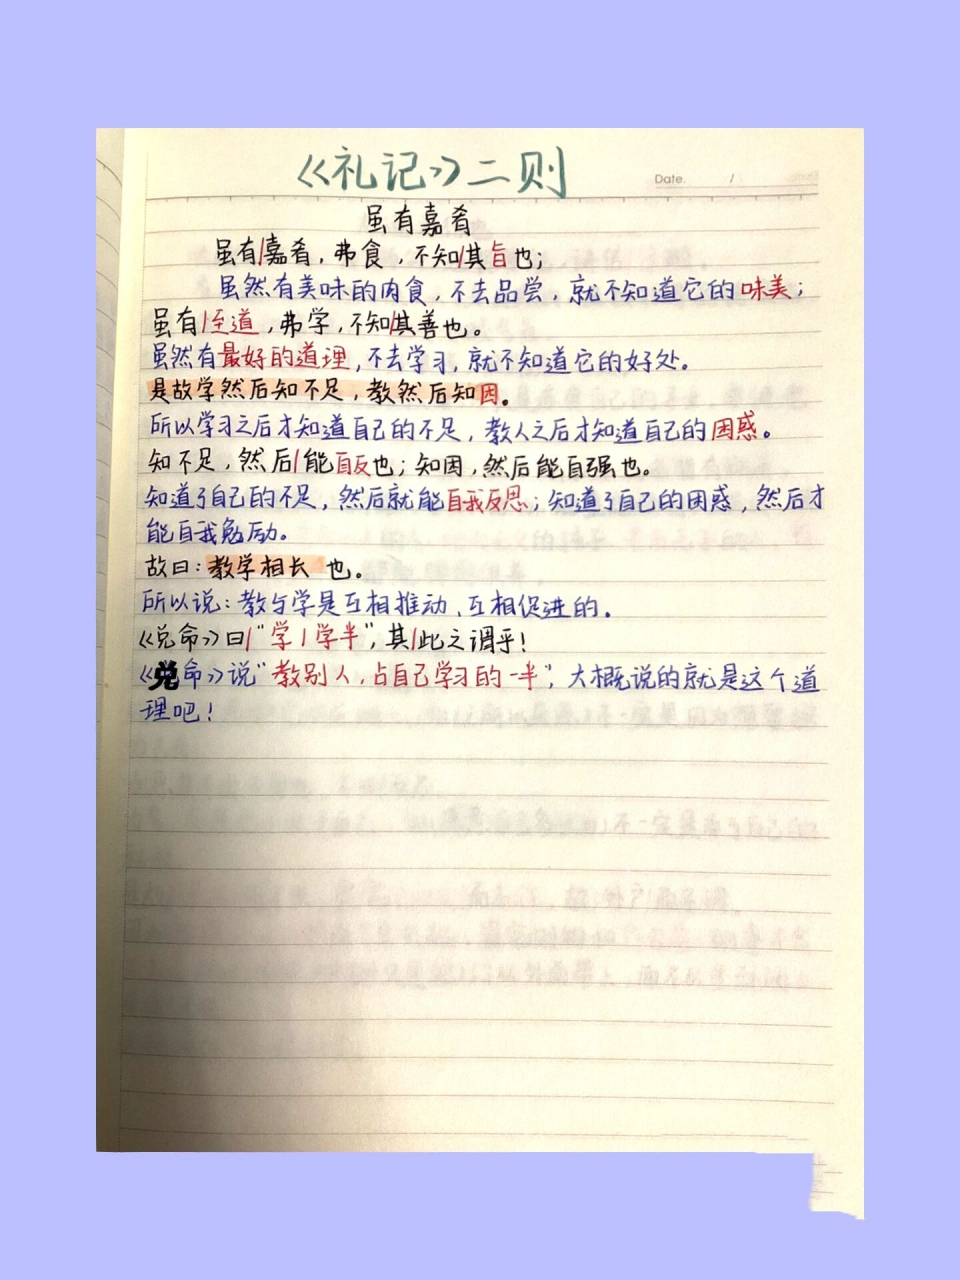 《礼记》二则
Date. /
虽有嘉肴
虽有/嘉肴，弗食，不知/其旨也；
虽然有美味的肉食，不去品尝，就不知道它的味美；
虽有/至道，弗学，不知/其善也。
虽然有最好的道理，不去学习，就不知道它的好处。
是故学然后知不足，教然后知困。
所以学习之后才知道自己的不足，教人之后才知道自己的困惑。
知不足，然后/能自反也；知困，然后能自强也。
知道了自己的不足，然后就能自我反思；知道了自己的困惑，然后才
能自我勉励。
故曰：教学相长 也。
所以说：教与学是互相推动、互相促进的.
《兑命》曰/“学/学半”，其/此之谓乎！
《兑命》说“教别人，占自己学习的一半”，大概说的就是这个道
理吧！